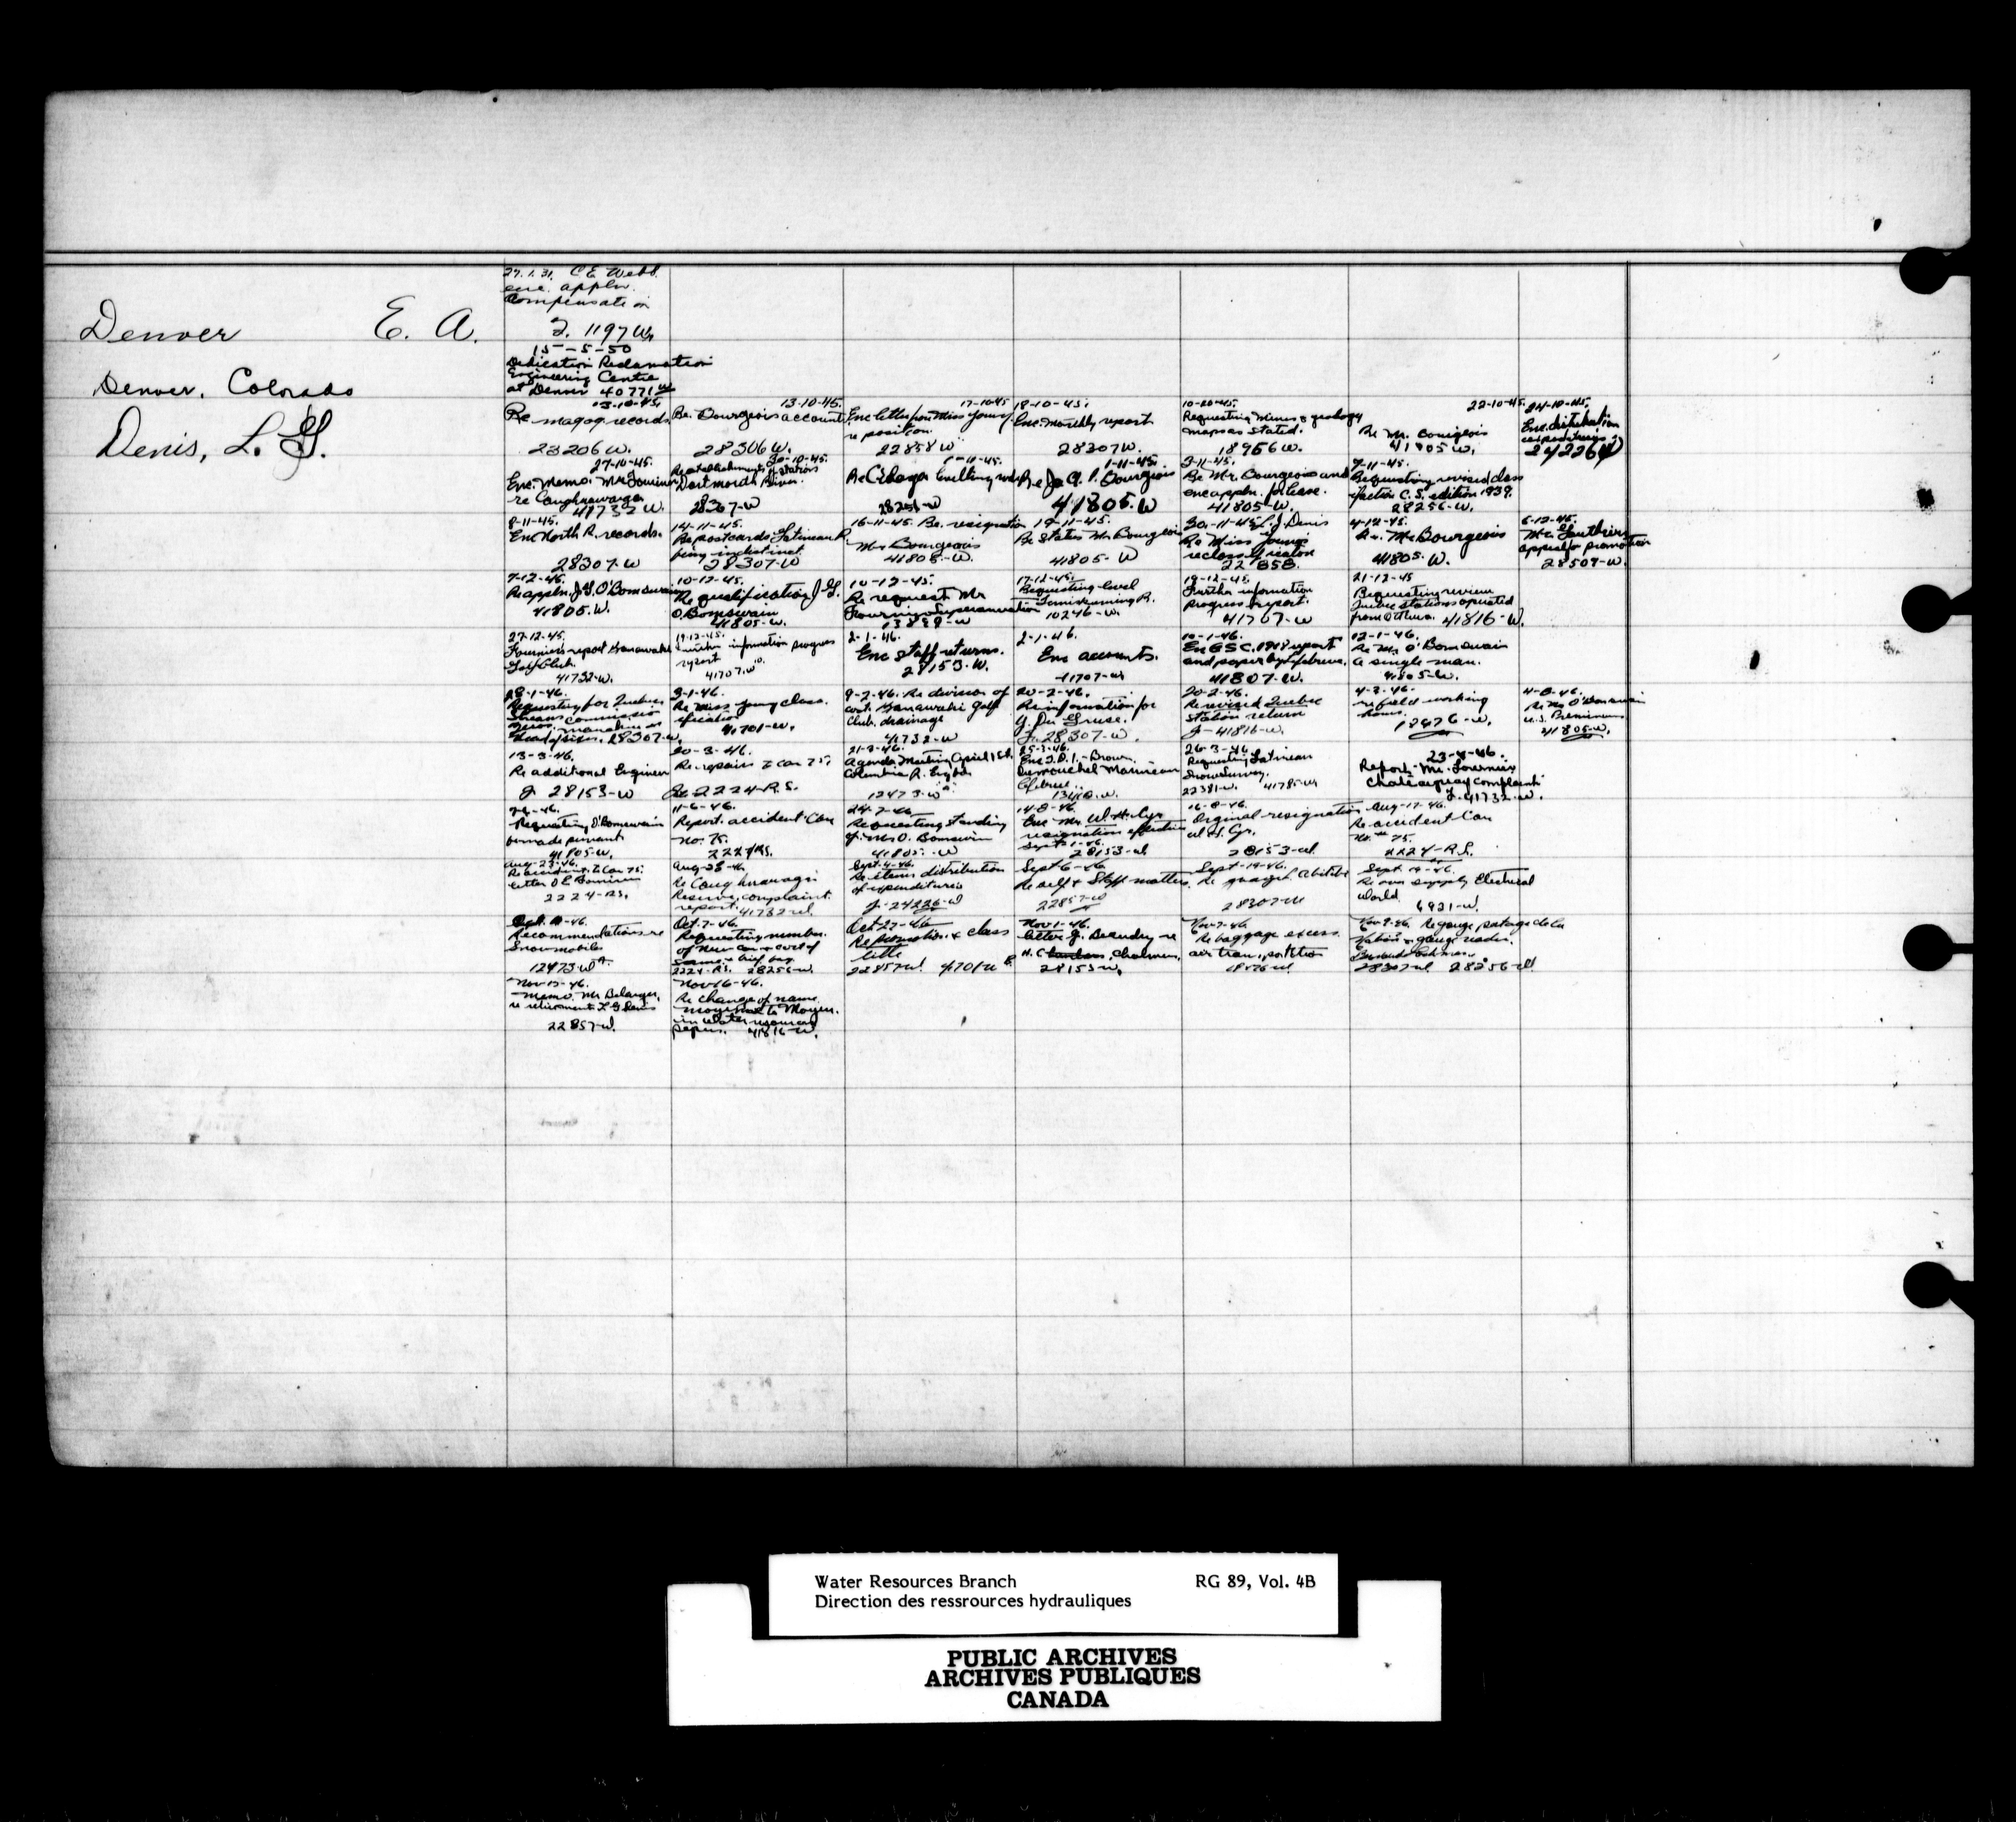 27.1.31. C E Webb.
enc. appln.
Compensation
Denver E. A.
2. 1197 W.
15-5-50
Dedication Reclamation
Engineering Centre
at Denver 40771 W
Denver, Colorado
Denis, L. G.
13-10-45.
Re magog records.
23206 W.
13-10-45.
Re. Bourgeois account.
28306 W.
17-10-45
Enc letter from Miss Young
re position.
22858 W
18-10-45.
Enc. monthly report
28307 W.
10-20-45.
Requesting Mines & geology
maps as stated.
18956 W.
22-10-45.
Re Mr. Bourgeois
41805 W.
24-10-45.
Enc. distribution
expenditures
24226 W
27-10-45.
Enc. Memo. Mr
re Caughnawaga
41732 W.
30-10-45.
Re establishment of stations
Dartmouth River.
28307-W
1-11-45.
28256-W
1-11-45.
Re J. A. P. Bourgeois
41805-W
3-11-45.
Re Mr. Bourgeois and
enc appln. for leave.
41805-W.
7-11-45.
Requesting revised class
ification C. S. edition 1939.
28256-W.
8-11-45.
Enc North R. records.
28307-W
14-11-45.
Re postcards Gatineau R.
being indistinct
28307-W
16-11-45. Re. resignation
Mr Bourgeois
41805-W.
19-11-45.
Re Status Mr Bourgeois
41805-W
30-11-45 L. G. Denis
Re Miss Youngs
reclassification
22858.
4-12-45.
Re. Mr Bourgeois
41805-W.
6-12-45.
Mr. Gauthiers
appeal for promotion
28507-W.
7-12-45.
Re appln. J. G. O'Bomsawin
41805-W.
10-12-45.
Re qualification J. G.
O'Bomsawin
41805-W.
10-12-45.
Re request Mr
Fournier Superannuation
13839-W
17-12-45.
Requesting level
Temiskaming R.
10246-W.
19-12-45.
Further information
progress report.
41707-W
21-12-45
Requesting review
Quebec stations operated
from Ottawa. 41816-W.
27-12-45.
Fourniers report Kanawaki
Golf Club.
41732-W.
19-12-45.
Further information progress
report
41707-W.
2-1-46.
Enc staff returns.
28153-W.
2-1-46.
Enc accounts.
41707-W
10-1-46.
Enc G S C. 1918 report
and paper by Lefebvre.
41807-W.
12-1-46.
Re Mr O'Bomsawin
a single man.
41805-W.
28-1-46.
Requesting for Quebec
Streams Commission
28307-W.
3-1-46.
Re Miss Young class-
ification
41701-W.
9-2-46. Re division of
cost. Kanawaki Golf
Club. drainage
41732-W
20-2-46.
Re information for
28307-W.
20-2-46.
Re revised Quebec
Station return
J-41816-W.
4-3-46.
re field working
hours.
4-8-46.
Re Mr O'Bomsawin
41805-W.
13-3-46.
Re additional Engineer
J 28153-W
20-3-46.
Re. repairs to car 75
2224-R.S.
21-3-46.
Agenda Meeting April 1st
Columbia R. Eng bd.
12473-W
25-3-46.
Lefebvre.
26-3-46
Requesting Gatineau
Snow Survey.
22381-W. 41785-W
23-4-46.
Report Mr. Fournier
Chateauguay complaint
J-41732-W.
Requesting O'Bomsawin
be made permanent
41805-W.
11-6-46.
Report. accident Car
No. 75.
2224-RS.
24-7-46
Requesting standing
of Mr O. Bomsawin
41805-W
14-8-46.
Enc Mr. W. H. Cyr
resignation effective
Sept 1-46.
28153-W
16-8-46.
Original resignation
W. H. Cyr.
28153-W.
Aug-17-46.
Re accident Car
No. 75.
2224-R.S.
Aug-23-46.
Re accident to Car 75.
letter
2224-RS.
Aug-28-46
Re Caughnawaga
Reserve, complaint
report. 41732-W.
Sept-4-46.
Re items distribution
of expenditures
J-24226-W
Sept 6-46
Re self & Staff matters
22857-W
Sept-19-46.
28307-W
Sept 19-46.
Re own supply Electrical
World.
6921-W.
Recommendations re
Snowmobiles
12473-W
Oct.7-46.
Requesting number
of new car & cost of
2224-R.S. 28256-W.
Oct 27-46
Re promotion & class
title
22857-W. 4701-W
Nov 1-46.
letter J. Beaudry re
H. C. Chalmers.
28153-W.
Nov 7-46.
Re baggage excess
air transportation
Nov-9-46. Re gauge portage de la
Nation & gauge reader.
28307-W 28256-W
Nov-12-46.
Memo. Mr Belanger,
re retirement L G Denis
22857-W.
Nov 16-46.
Re change of name.
to Moyen.
in water resources
papers. 41816-W.
Water Resources Branch RG 89, Vol. 4B
Direction des ressrources hydrauliques
PUBLIC ARCHIVES
ARCHIVES PUBLIQUES
CANADA